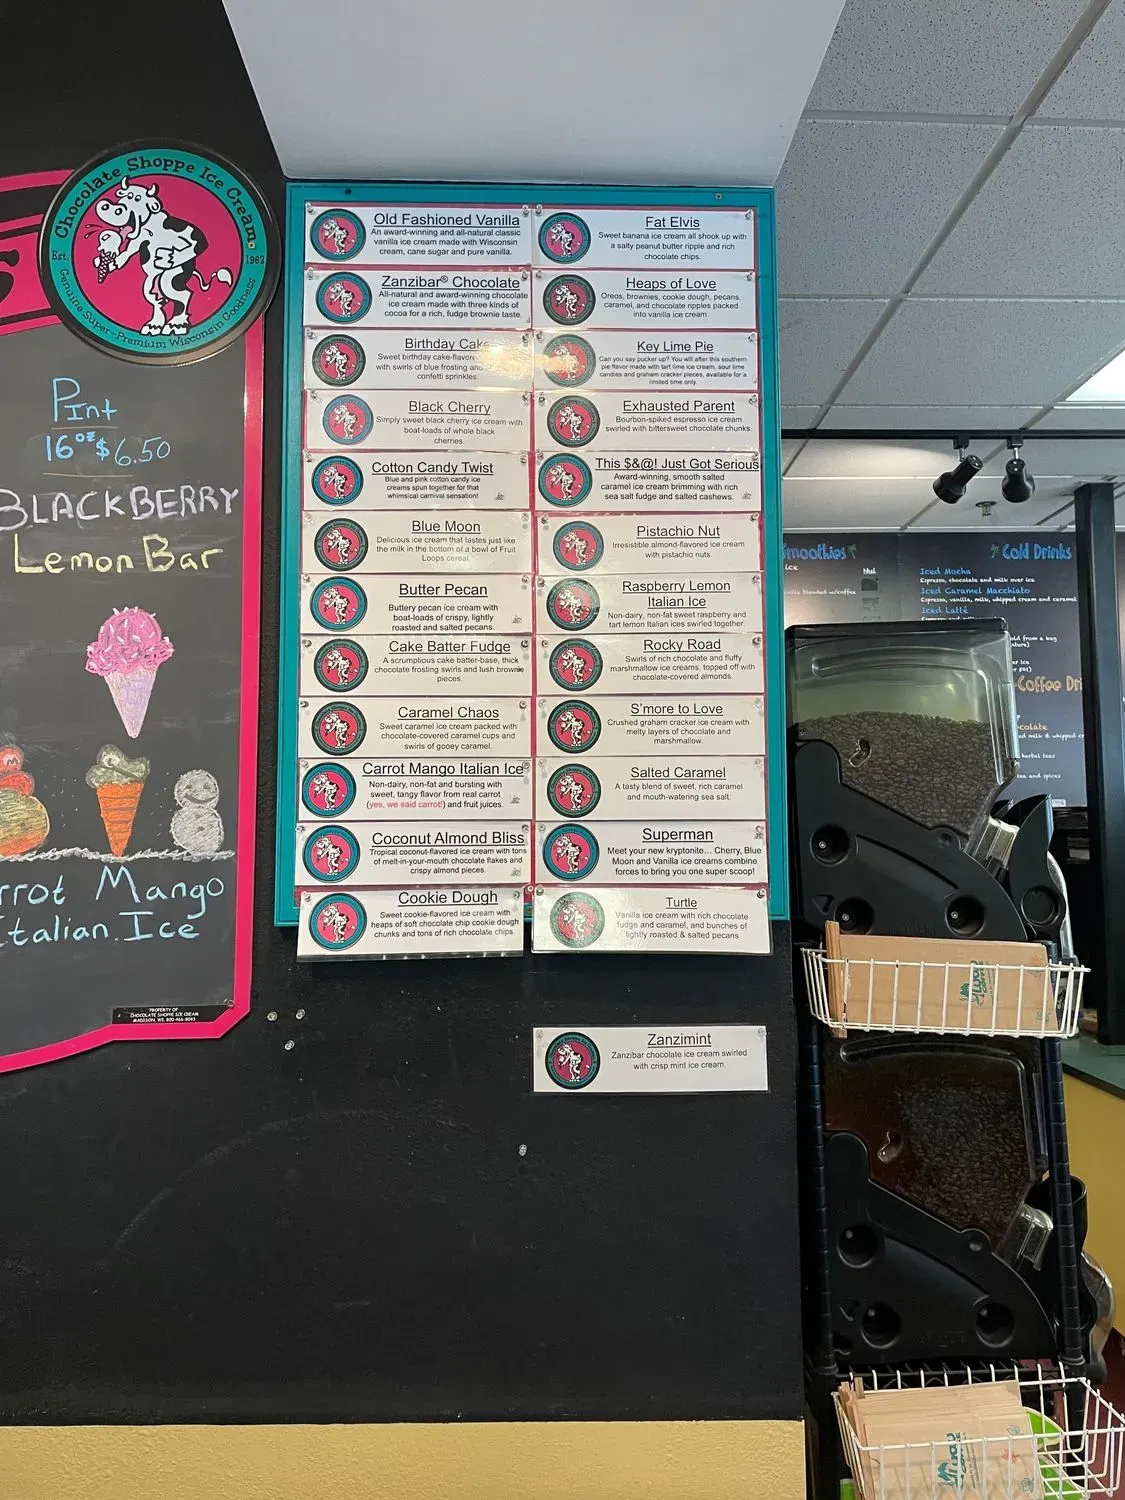 Chocolate Shoppe Ice Cream
Est. 1962
Genuine Super-Premium Wisconsin Goodness
Pint
16oz $6.50
BLACKBERRY
Lemon Bar
rrot Mango
Italian Ice
PROPERTY OF
CHOCOLATE SHOPPE ICE CREAM
MADISON, WI. 800-466-8043
Old Fashioned Vanilla
An award-winning and all-natural classic
vanilla ice cream made with Wisconsin
cream, cane sugar and pure vanilla.
Zanzibar® Chocolate
All-natural and award-winning chocolate
ice cream made with three kinds of
cocoa for a rich, fudge brownie taste.
Birthday Cake
Sweet birthday cake-flavor
with swirls of blue frosting and
confetti sprinkles.
Black Cherry
Simply sweet black cherry ice cream with
boat-loads of whole black
cherries.
Cotton Candy Twist
Blue and pink cotton candy ice
creams spun together for that
whimsical carnival sensation!
Blue Moon
Delicious ice cream that tastes just like
the milk in the bottom of a bowl of Fruit
Loops cereal.
Butter Pecan
Buttery pecan ice cream with
boat-loads of crispy, lightly
roasted and salted pecans.
Cake Batter Fudge
A scrumptious cake batter-base, thick
chocolate frosting swirls and lush brownie
pieces.
Caramel Chaos
Sweet caramel ice cream packed with
chocolate-covered caramel cups and
swirls of gooey caramel.
Carrot Mango Italian Ice
Non-dairy, non-fat and bursting with
sweet, tangy flavor from real carrot
(yes, we said carrot!) and fruit juices.
Coconut Almond Bliss
Tropical coconut-flavored ice cream with tons
of melt-in-your-mouth chocolate flakes and
crispy almond pieces.
Cookie Dough
Sweet cookie-flavored ice cream with
heaps of soft chocolate chip cookie dough
chunks and tons of rich chocolate chips.
Fat Elvis
Sweet banana ice cream all shook up with
a salty peanut butter ripple and rich
chocolate chips.
Heaps of Love
Oreos, brownies, cookie dough, pecans,
caramel, and chocolate ripples packed
into vanilla ice cream.
Key Lime Pie
Can you say pucker up? You will after this southern
pie flavor made with tart lime ice cream, sour lime
candies and graham cracker pieces, available for a
limited time only.
Exhausted Parent
Bourbon-spiked espresso ice cream
swirled with bittersweet chocolate chunks.
This $&@! Just Got Serious
Award-winning, smooth salted
caramel ice cream brimming with rich
sea salt fudge and salted cashews.
Pistachio Nut
Irresistible almond-flavored ice cream
with pistachio nuts.
Raspberry Lemon
Italian Ice
Non-dairy, non-fat sweet raspberry and
tart lemon Italian ices swirled together.
Rocky Road
Swirls of rich chocolate and fluffy
marshmallow ice creams, topped off with
chocolate-covered almonds.
S'more to Love
Crushed graham cracker ice cream with
melty layers of chocolate and
marshmallow.
Salted Caramel
A tasty blend of sweet, rich caramel
and mouth-watering sea salt.
Superman
Meet your new kryptonite... Cherry, Blue
Moon and Vanilla ice creams combine
forces to bring you one super scoop!
Turtle
Vanilla ice cream with rich chocolate
fudge and caramel, and bunches of
lightly roasted & salted pecans
Zanzimint
Zanzibar chocolate ice cream swirled
with crisp mint ice cream.
Smoothies
Cold Drinks
Iced Mocha
Espresso, chocolate and milk over ice
Iced Caramel Macchiato
Espresso, vanilla, milk, whipped cream and caramel
Iced Latté
blended w/coffee